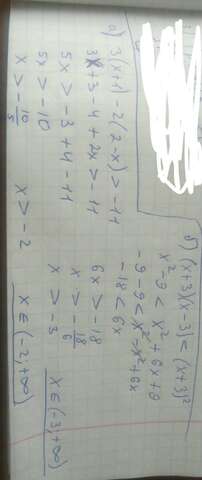 а) 3(x+1) - 2(2-x) > -11
3x + 3 - 4 + 2x > -11
5x > -3 + 4 - 11
5x > -10
x > - 10/5 x > -2
x ∈ (-2; +∞)
б) (x+3)(x-3) < (x+3)²
x² - 9 < x² + 6x + 9
-9 - 9 < x² - x² + 6x
-18 < 6x
6x > -18
x > - 18/6
x > -3
x ∈ (-3; +∞)